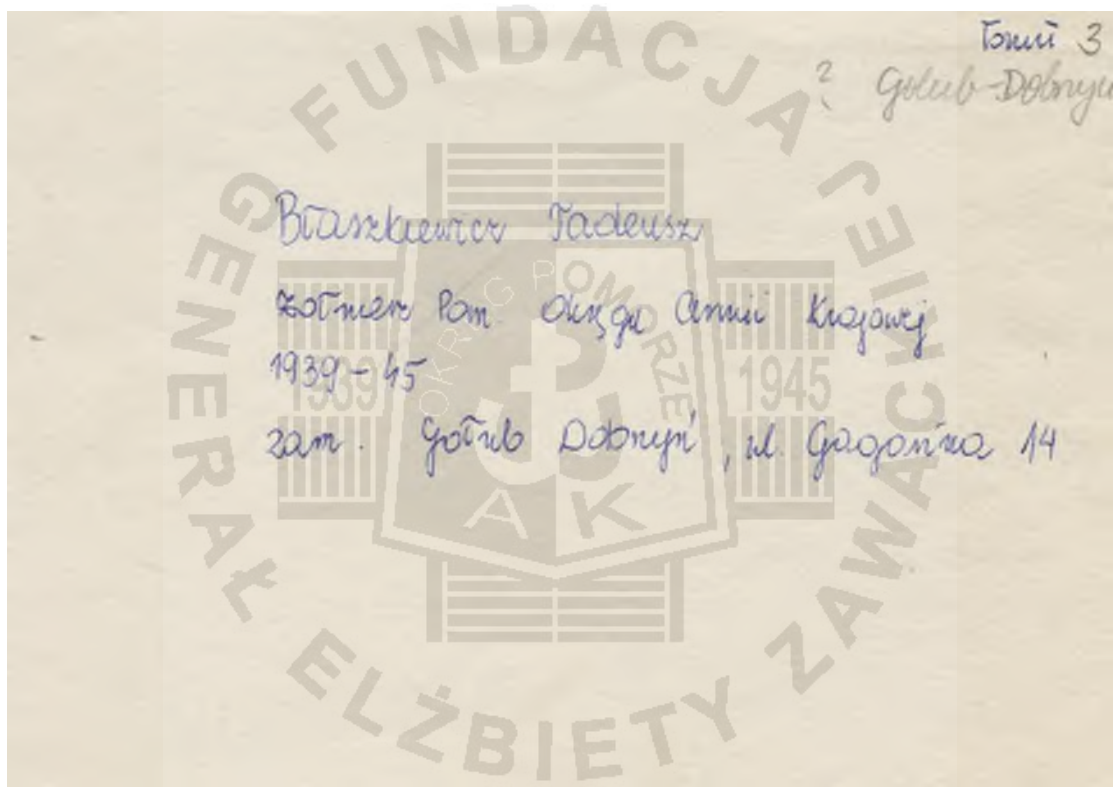 Toruń 3
? Golub-Dobrzyń
Błaszkiewicz Tadeusz
żołnierz Pom. Okręgu Armii Krajowej
1939-45
zam. Gołub Dobrzyń, ul. 14
FUNDACJA GENERAŁ ELŻBIETY ZAWACKIEJ
OKRĘG POMORZE
1939 1945
AK